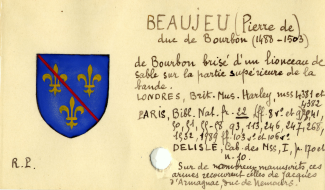 BEAUJEU (Pierre de)
duc de Bourbon (1488-1503)
de Bourbon brisé d'un lionceau de
sable sur la partie supérieure de la
bande.
LONDRES, Brit. Mus. Harley, mss 4381 et
4382
PARIS, Bibl. Nat. fr. 22 ff. 8 vº et
50, 51, 93, 113, 246, 247, 268,
1989 ff. 103 vº et 106 vº
DELISLE, Cab. des Mss, I, p. 170 et
n. 10.
Sur de nombreux manuscrits, ces
armes recouvrent celles de Jacques
d'Armagnac, duc de Nemours.
R.L.